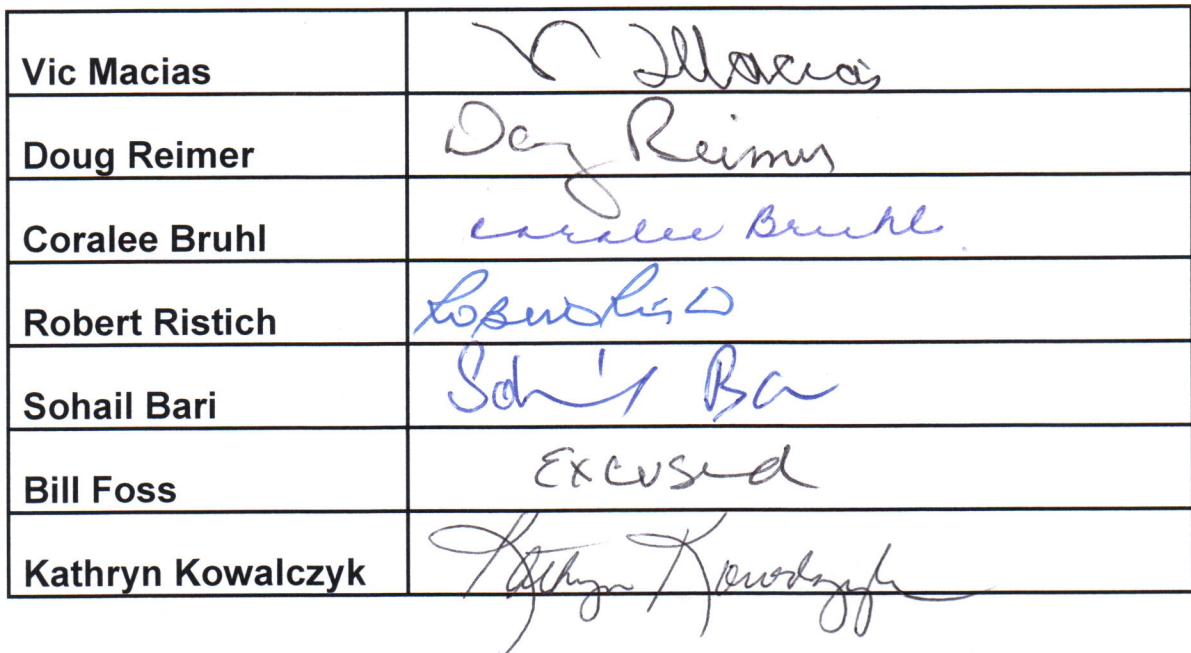 Vic Macias V Macias
Doug Reimer Doug Reimer
Coralee Bruhl Coralee Bruhl
Robert Ristich Robert Rist
Sohail Bari Sohail Bari
Bill Foss Excused
Kathryn Kowalczyk Kathryn Kowalczyk